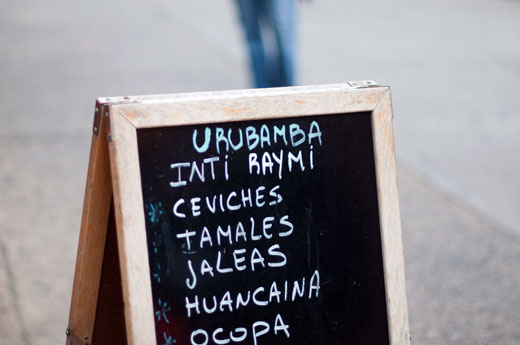 URUBAMBA
INTi RAYMi
CEVICHES
TAMALES
JALEAS
HUANCAINA
OCOPA